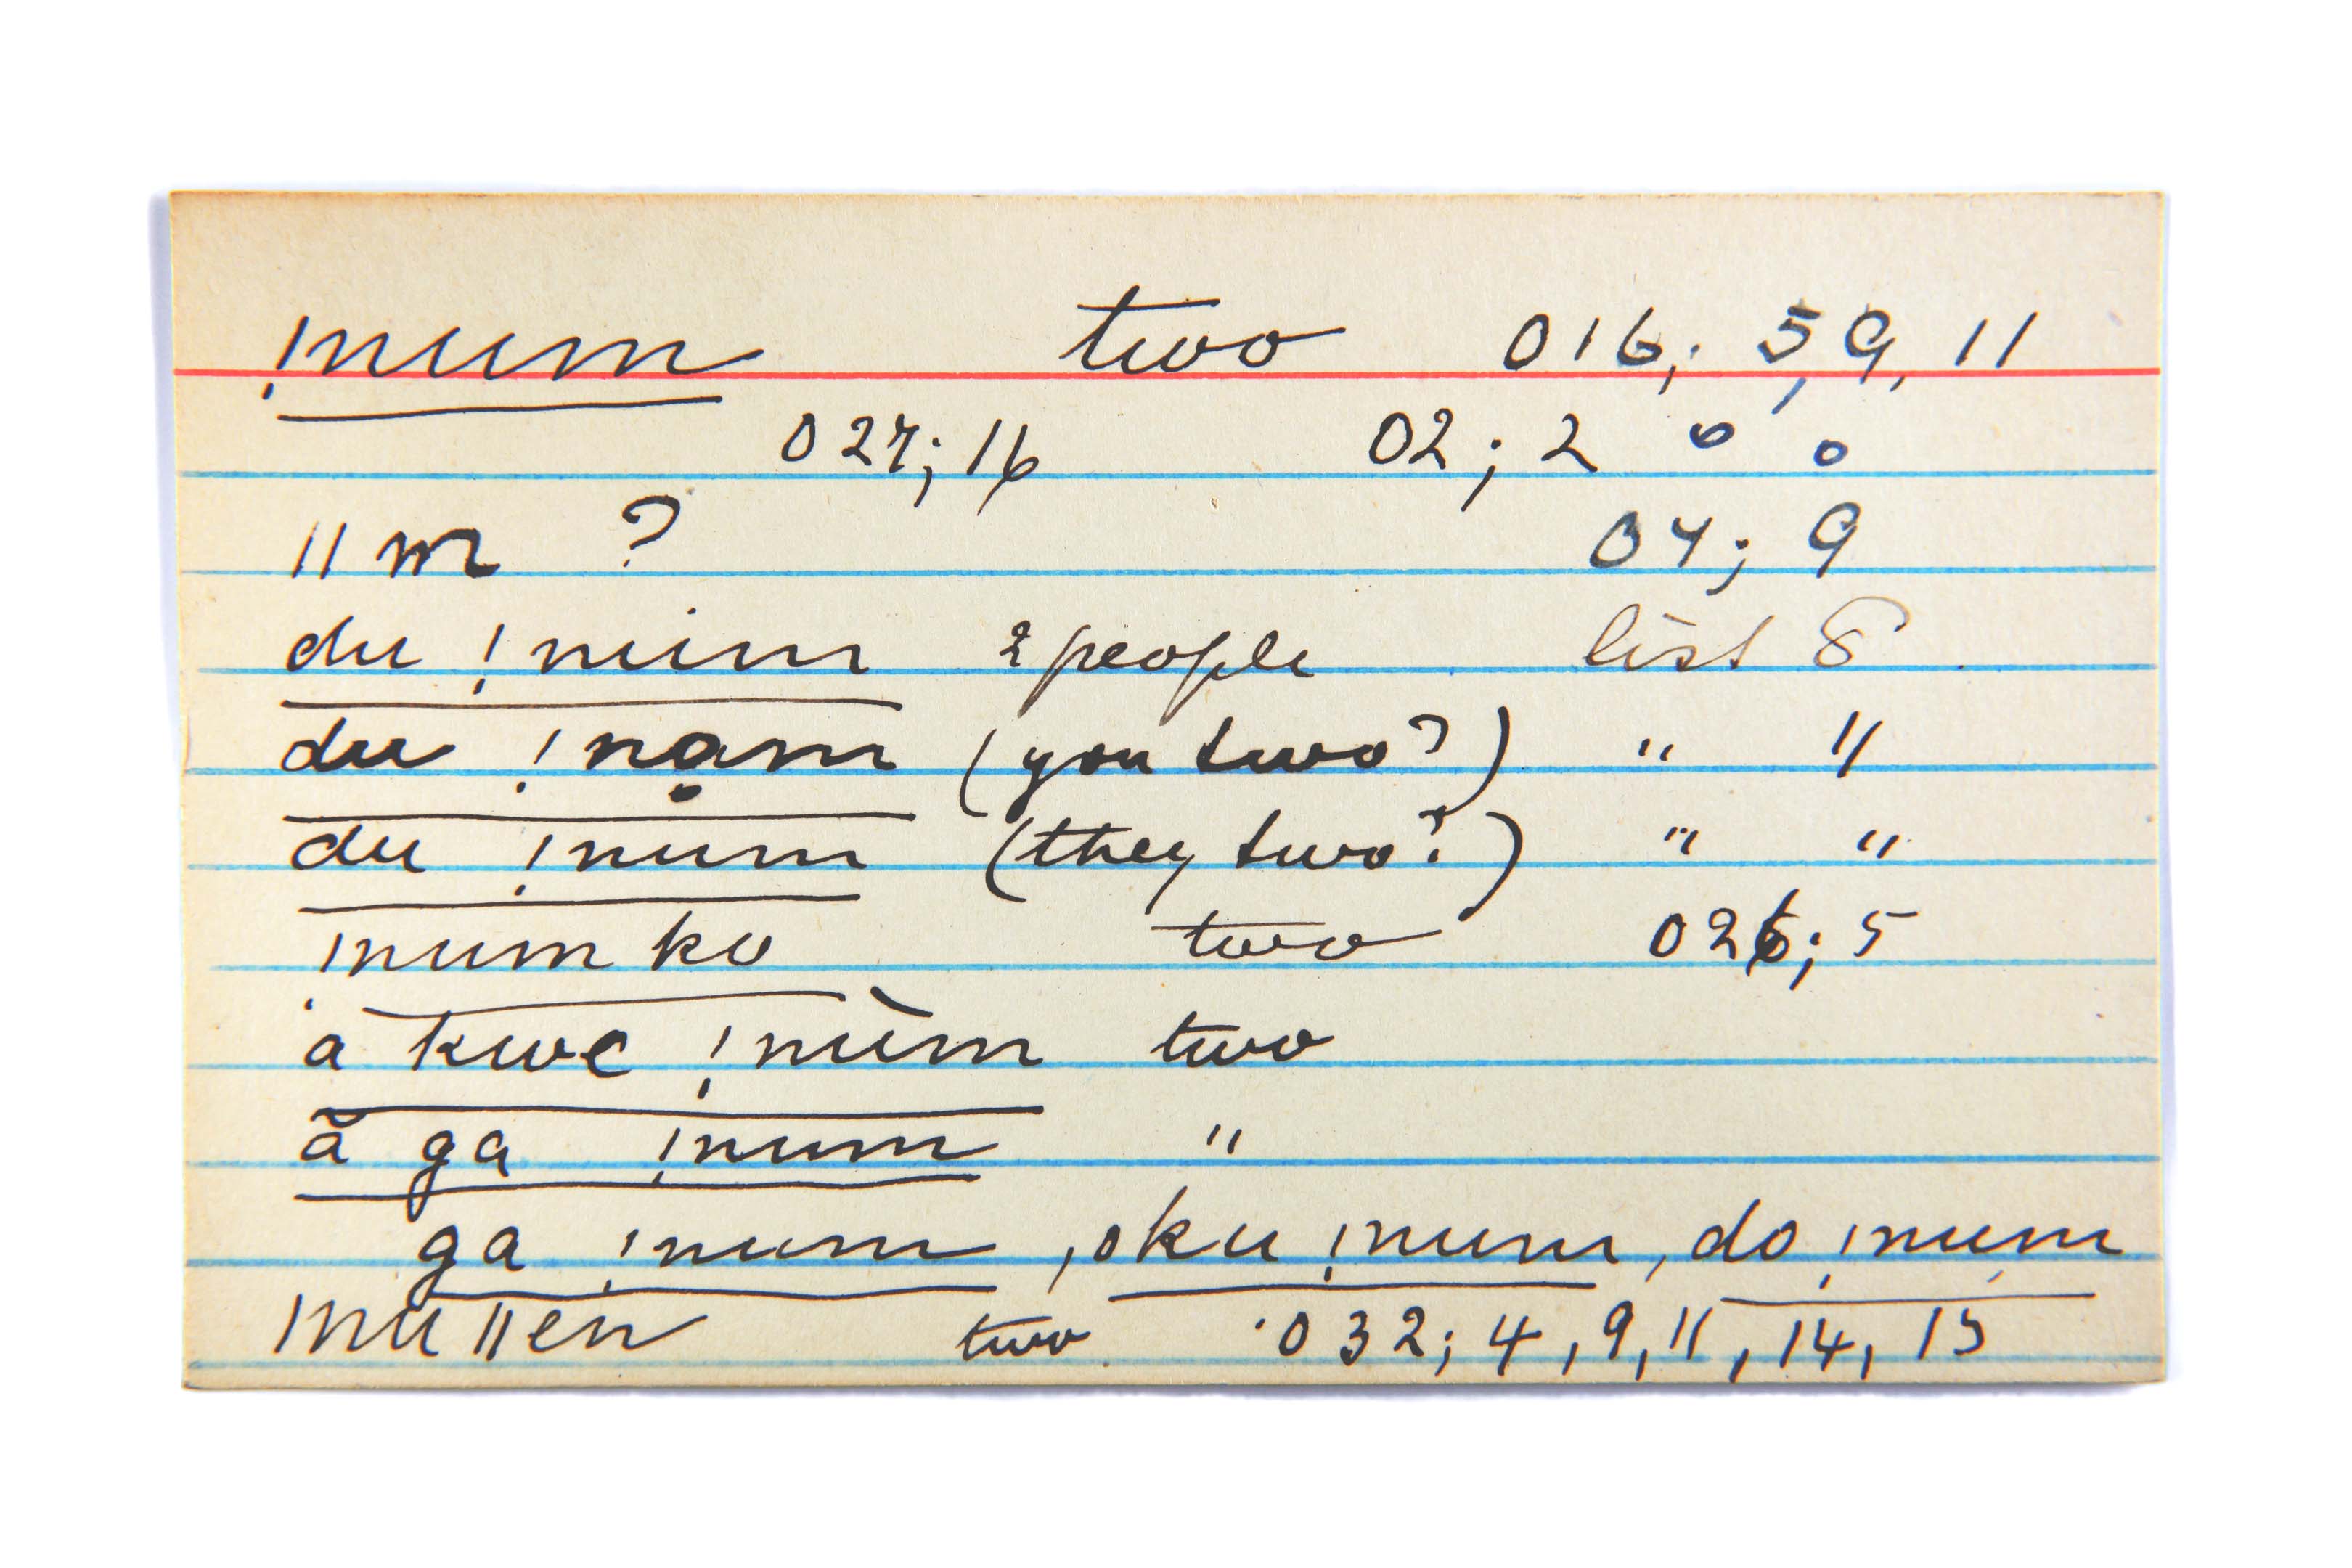 !num two 016; 5, 9, 11
027; 16 02; 2 o o
11 m ? 04; 9
du !num 2 people list 8
du !nạm (you two?) " "
du !num (they two?) " "
!num ko two 026; 5
a kwe !nùm two
ā ga !num "
ga !num, oku !num, do !num
!nu ǁen two 032; 4, 9, 11, 14, 15